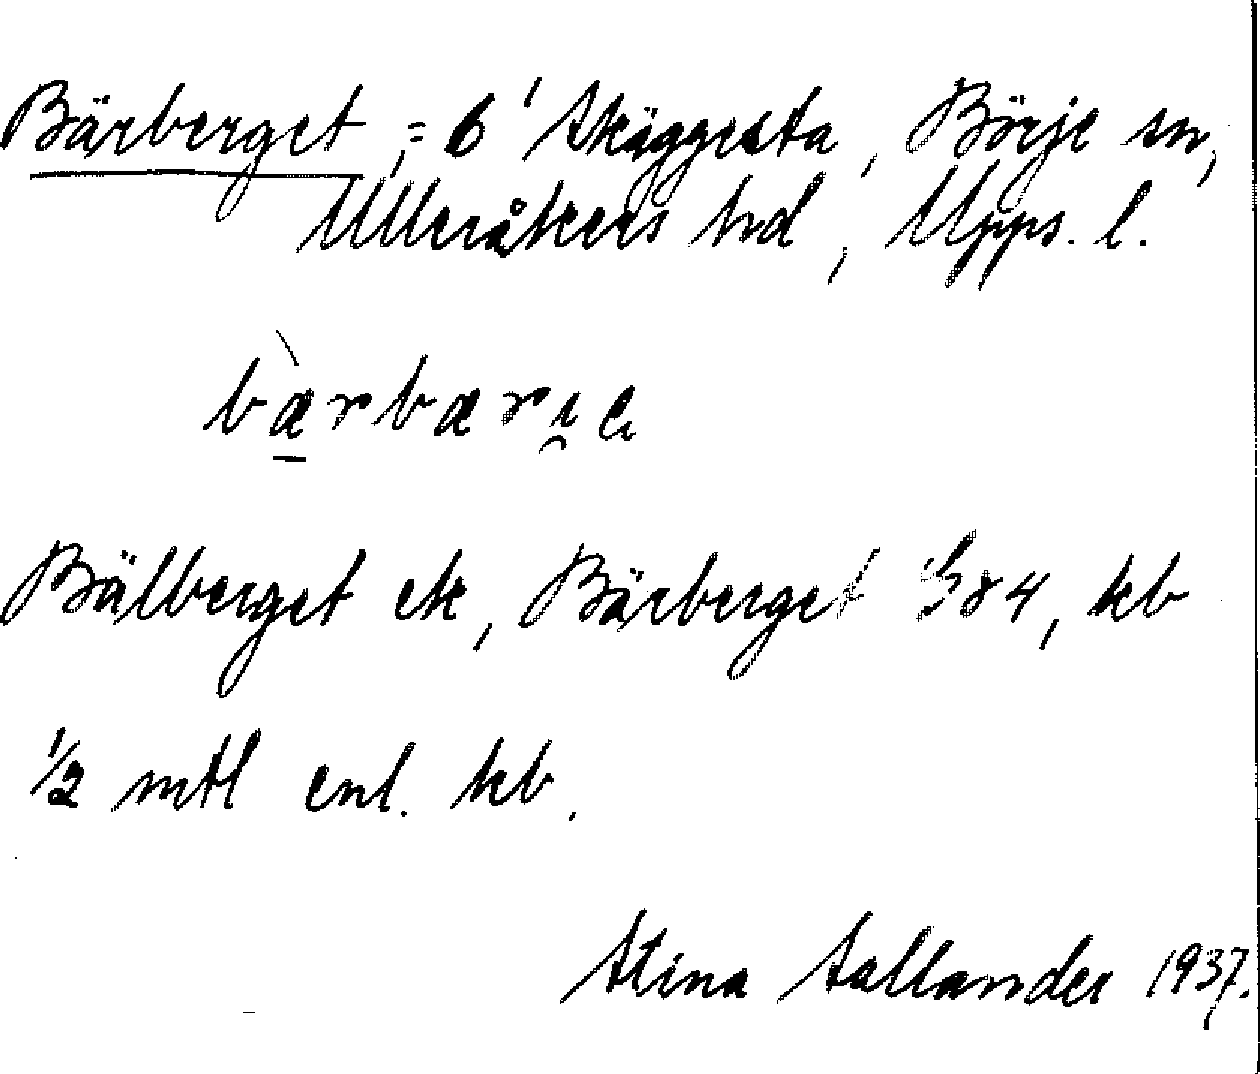 Bärberget, = 6 / Skäggesta, Börje sn,
Ulleråkers hd, Upps. l.
bærbærɩ
Bälberget ek, Bärberget 384, kb
1/2 mtl enl. kb.
Stina Sallander 1937.